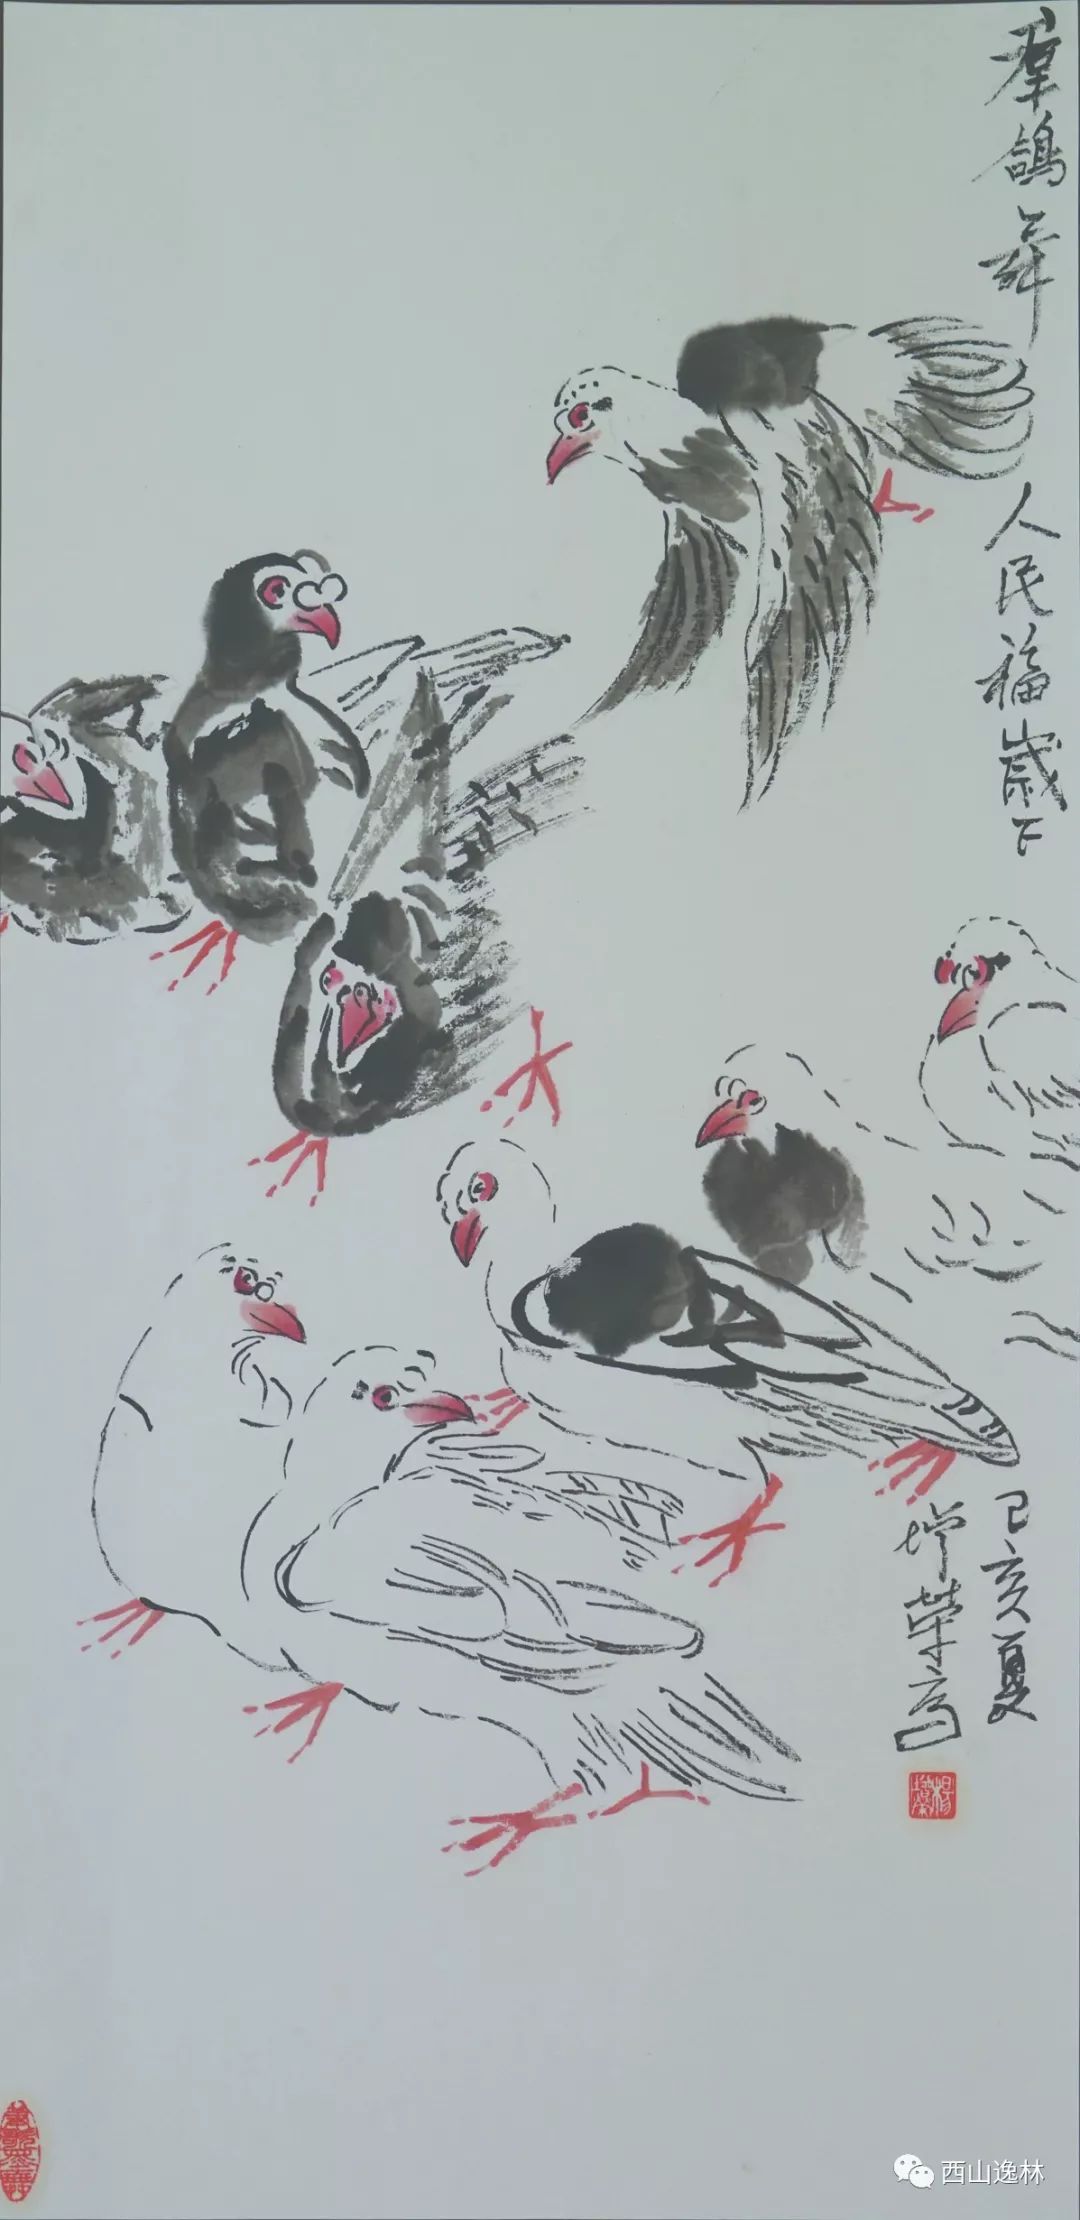 羣鴿舞
人民福
歲下
己亥夏
增荣写
西山逸林